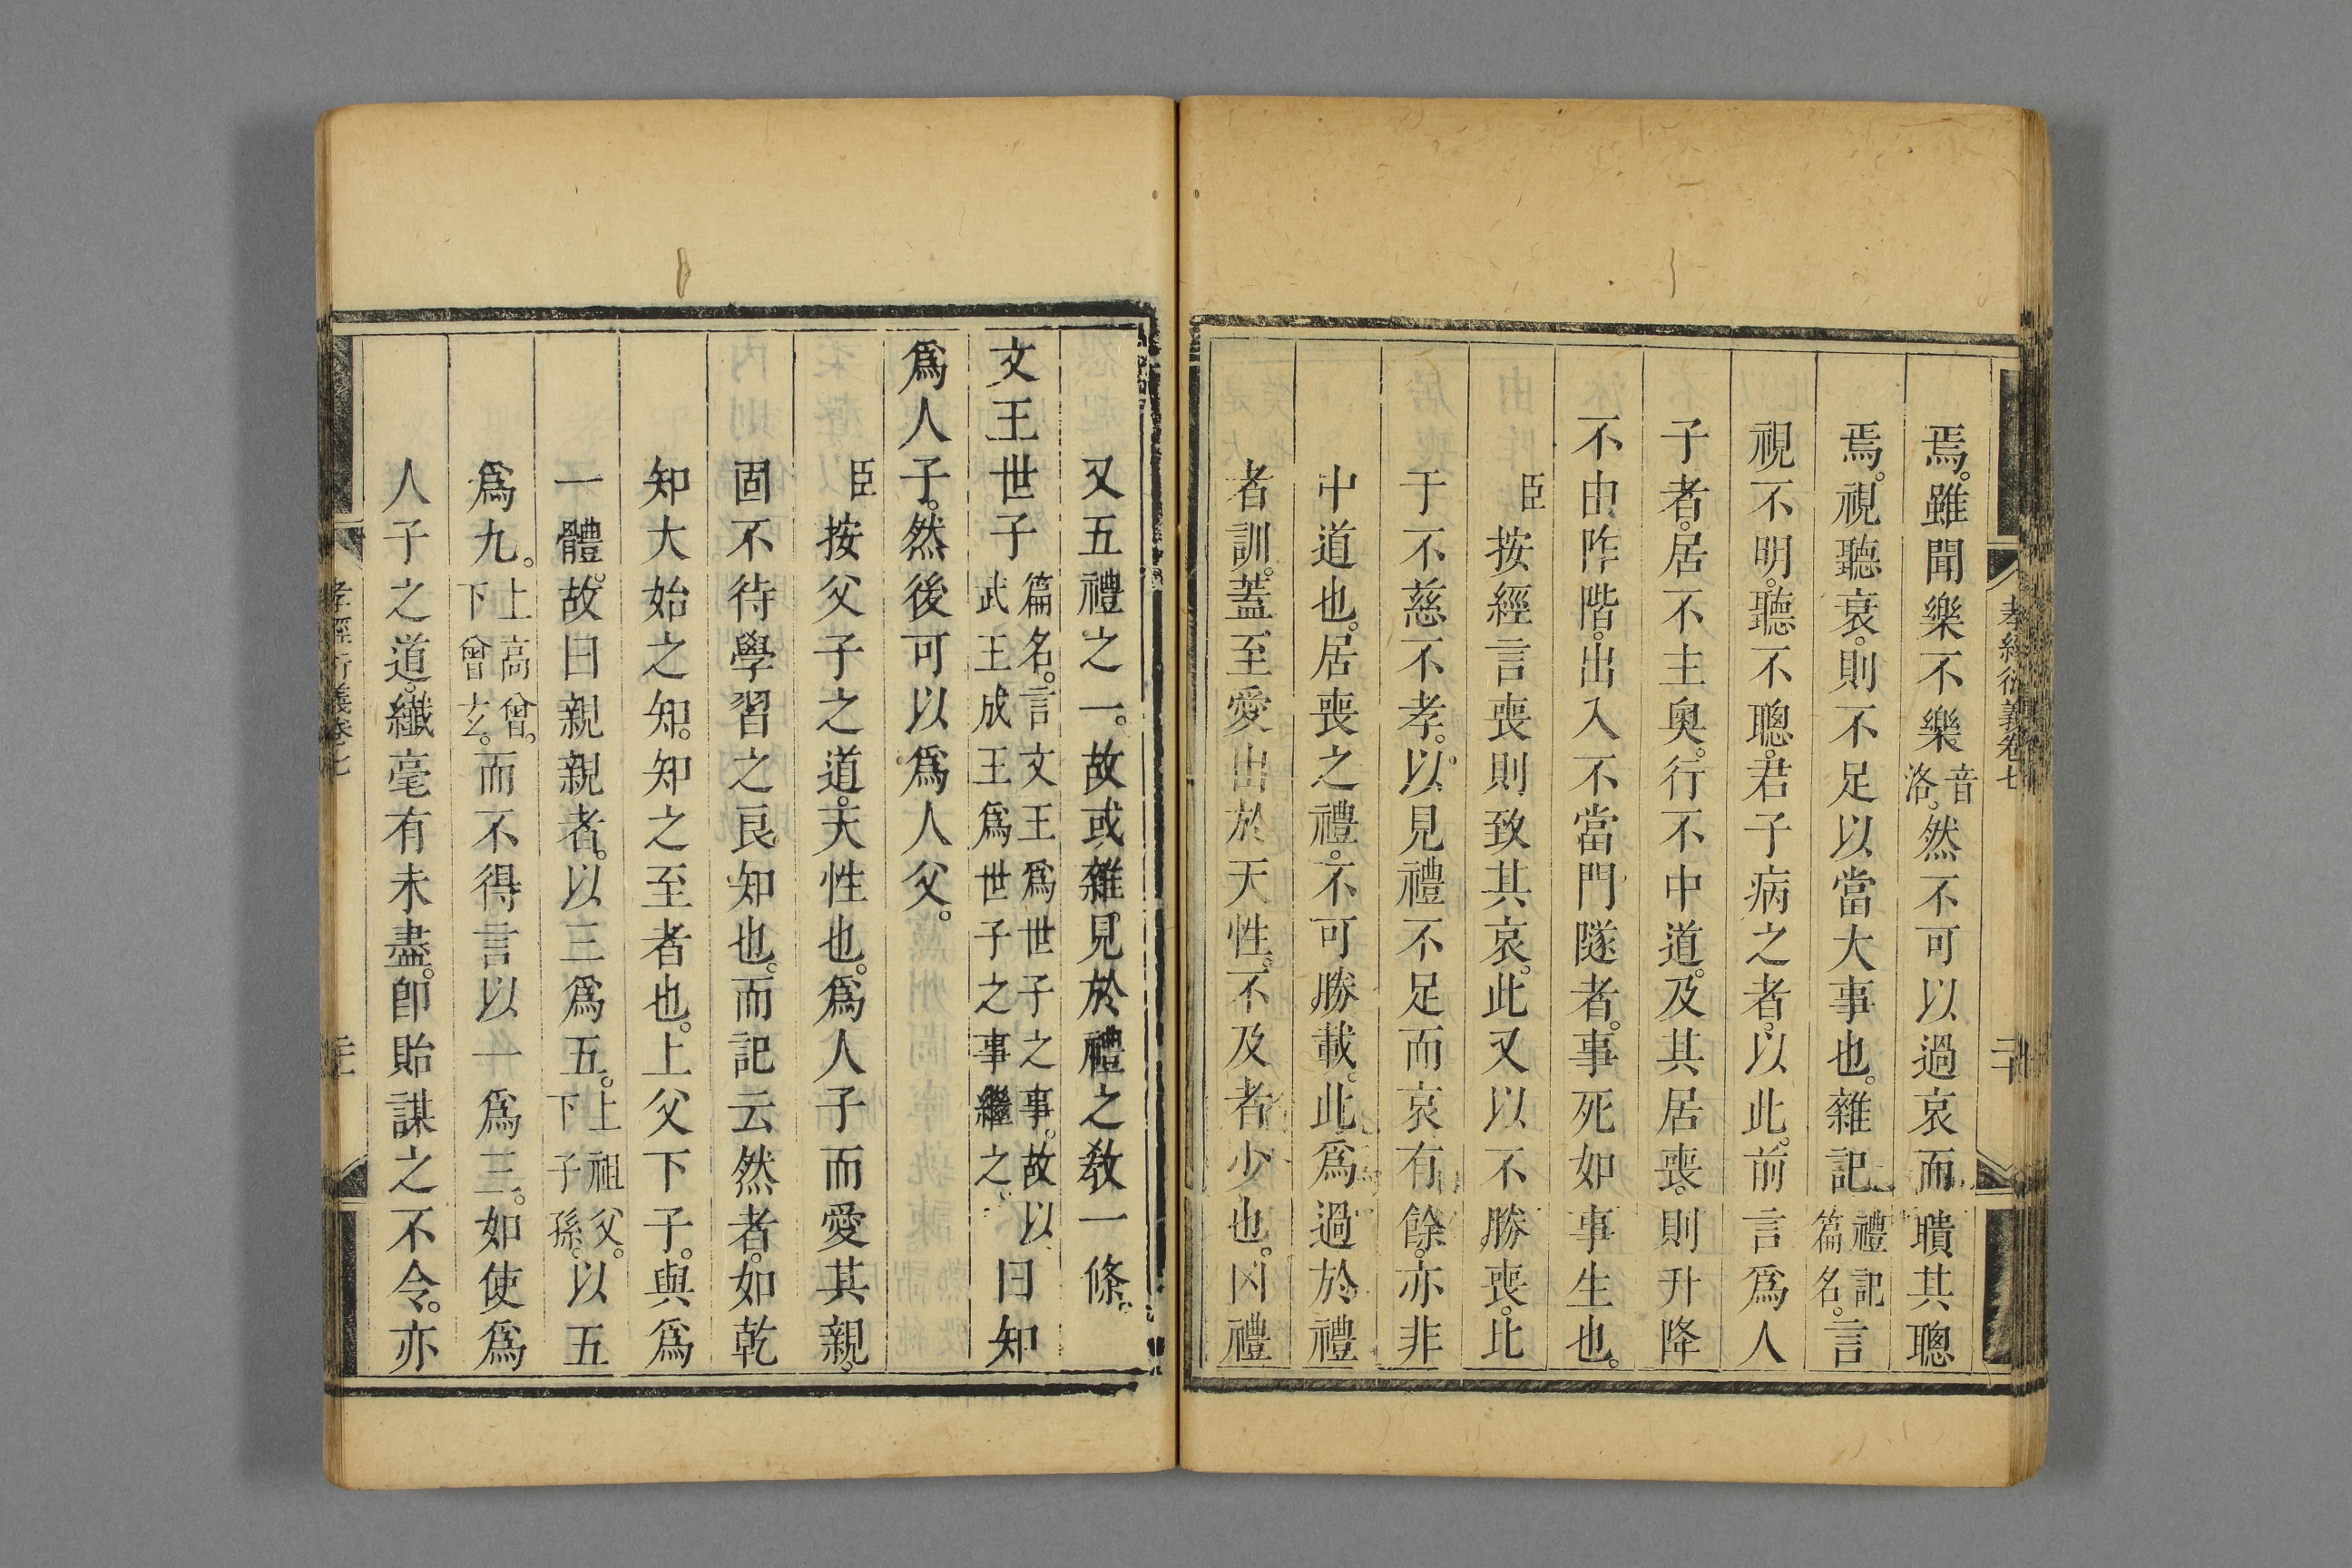 孝經衍義卷七
二十
焉。雖聞樂不樂音洛。然不可以過哀而聵其聰
焉。視聽衰。則不足以當大事也。雜記禮記篇名。言
視不明。聽不聰。君子病之者。以此。前言爲人
子者。居不主奧。行不中道。及其居喪。則升降
不由阼階。出入不當門隧者。事死如事生也。
臣按經言喪則致其哀。此又以不勝喪。比
于不慈不孝。以見禮不足而哀有餘。亦非
中道也。居喪之禮。不可勝載。此爲過於禮
者訓。蓋至愛出於天性。不及者少也。凶禮
又五禮之一。故或雜見於禮之敎一條。
文王世子篇名。言文王爲世子之事。故以武王成王爲世子之事繼之。曰知
爲人子。然後可以爲人父。
臣按父子之道。天性也。爲人子而愛其親。
固不待學習之良知也。而記云然者。如乾
知大始之知。知之至者也。上父下子。與爲
一體。故曰親親者。以三爲五。上祖父。下子孫。以五
爲九。上高曾。下曾玄。而不得言以一爲三。如使爲
人子之道。纖毫有未盡。卽貽謀之不令。亦
孝經衍義卷七